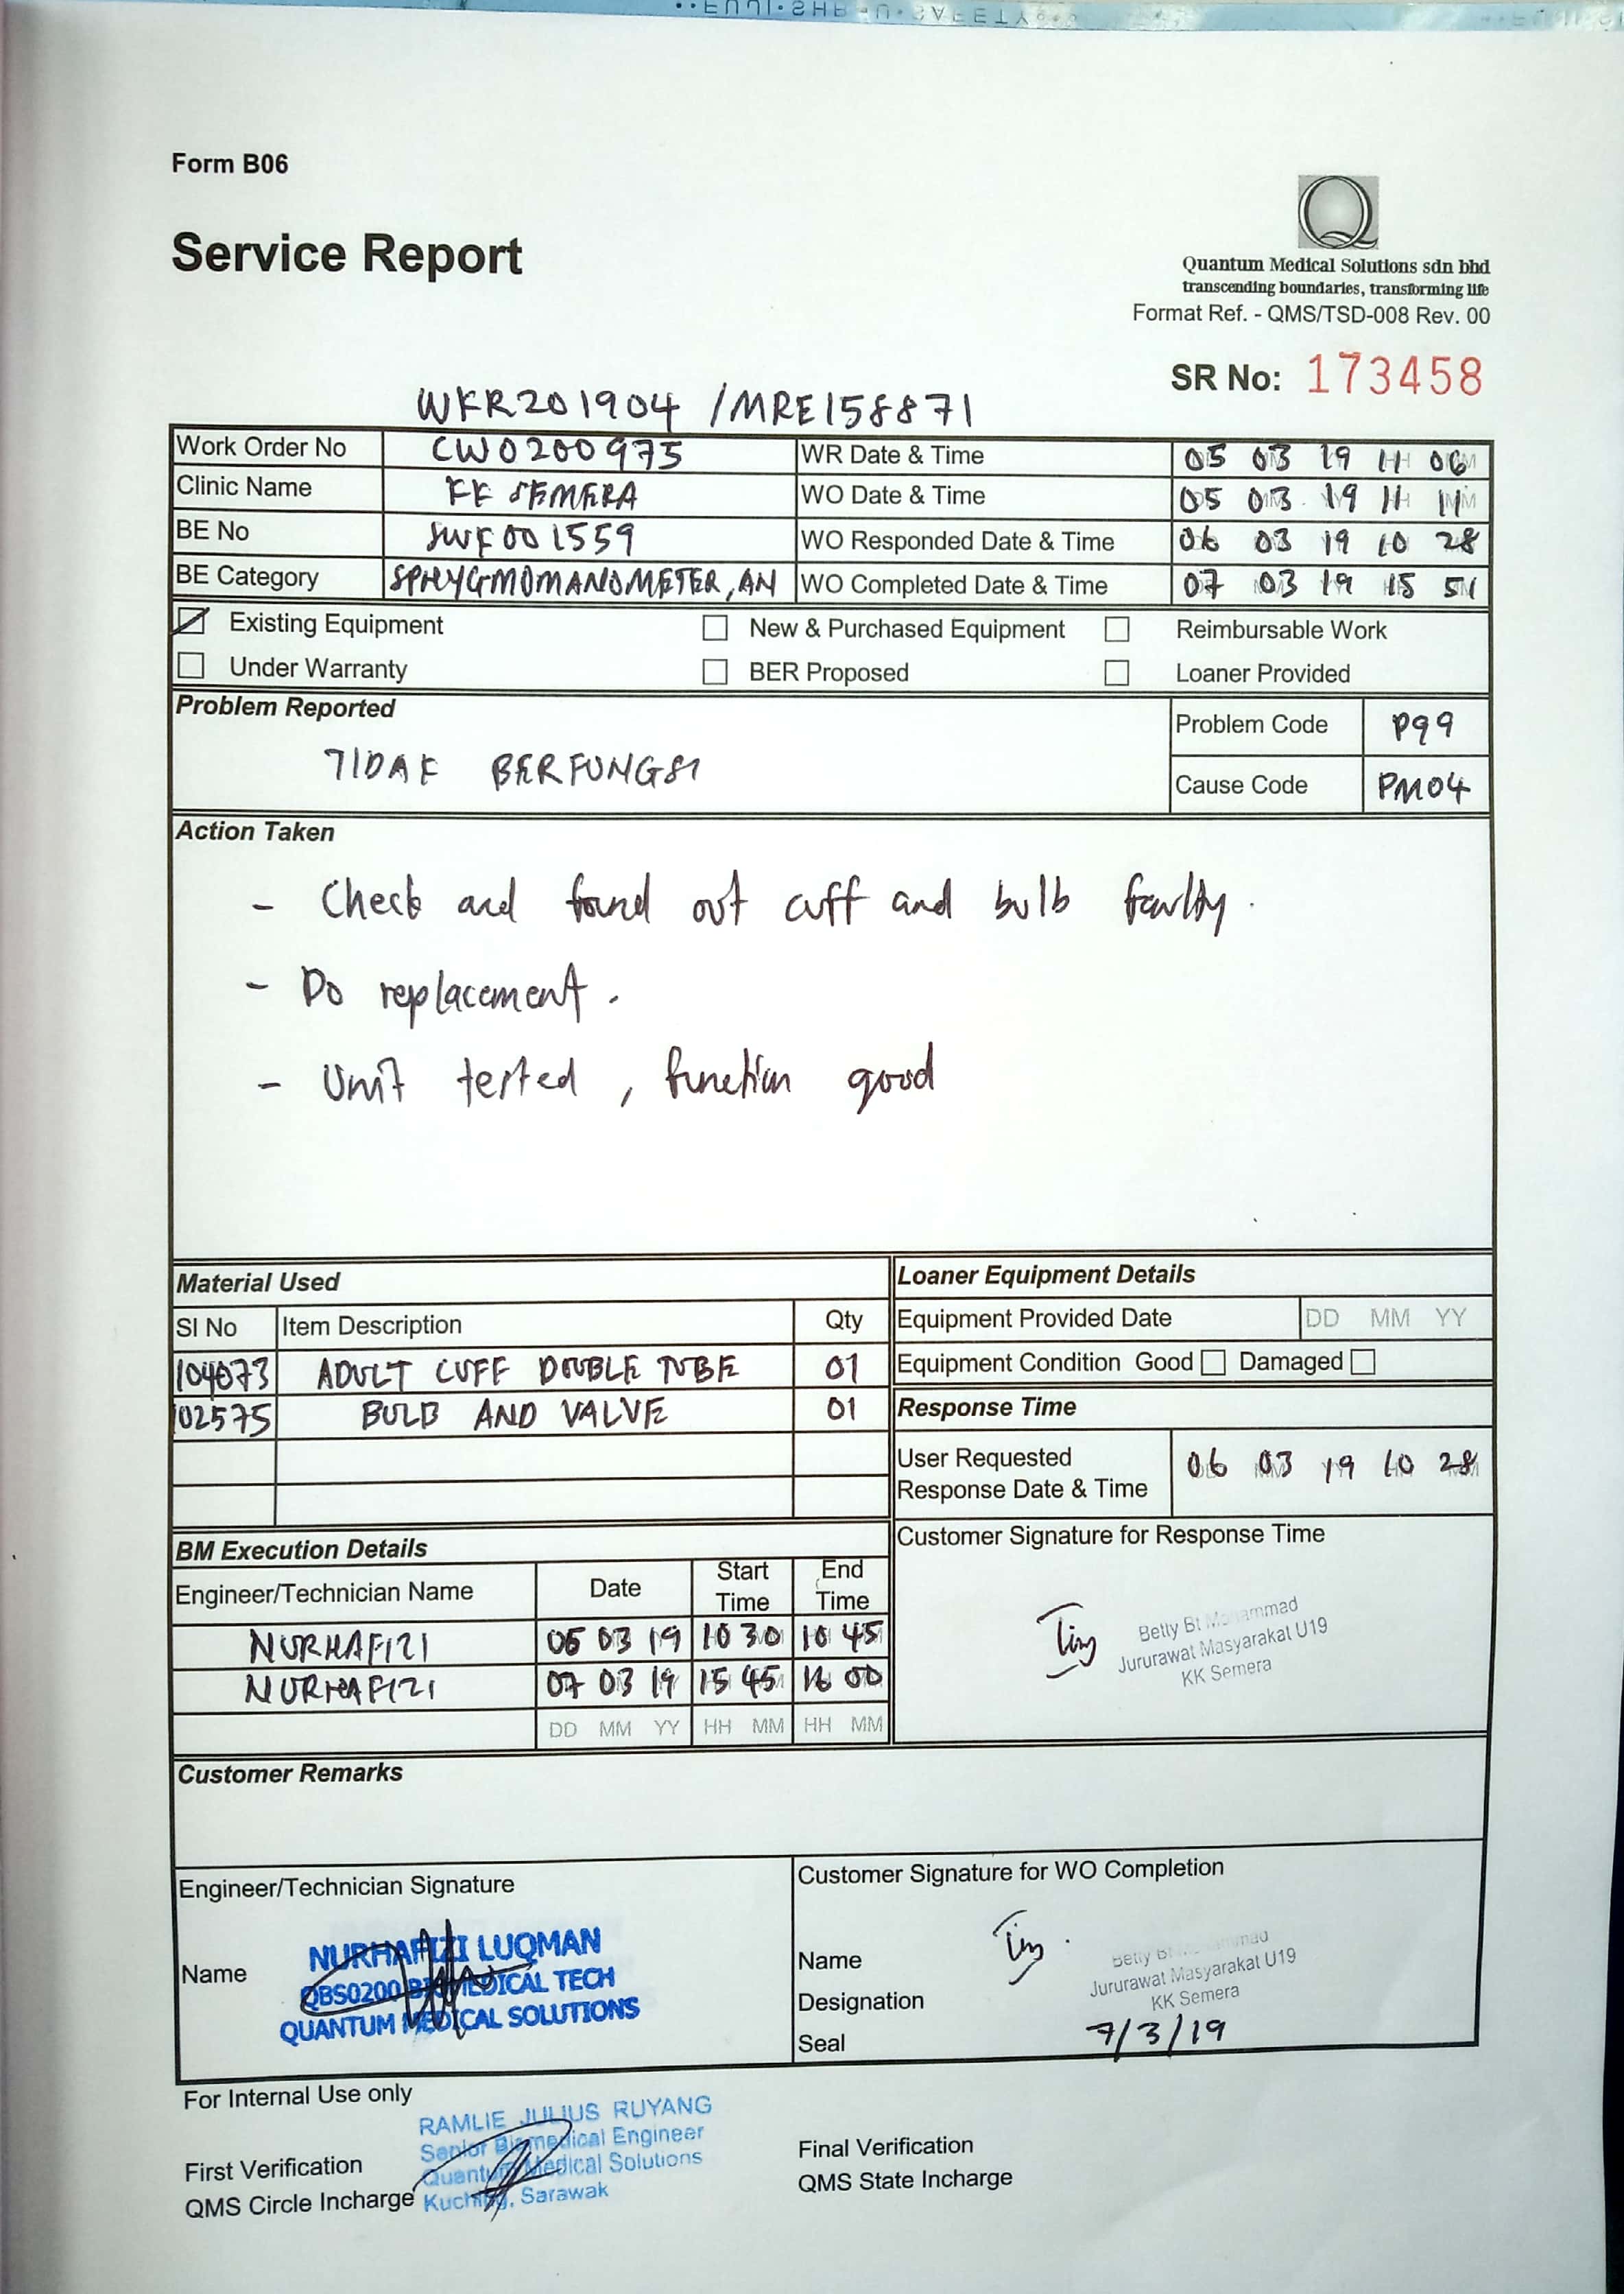 Form B06
Service Report
Quantum Medical Solutions sdn bhd
transcending boundaries, transforming life
Format Ref. - QMS/TSD-008 Rev. 00
SR No: 173458
WKR201904 /MRE158871
Work Order No CWO200975 WR Date & Time 05 03 19 11 06
Clinic Name KK SEMERA WO Date & Time 05 03 19 11 11
BE No SWK001559 WO Responded Date & Time 06 03 19 10 28
BE Category SPHYGMOMANOMETER, AN WO Completed Date & Time 07 03 19 15 51
Existing Equipment New & Purchased Equipment Reimbursable Work
Under Warranty BER Proposed Loaner Provided
Problem Reported
Problem Code P99
TIDAK BERFUNGSI
Cause Code PM04
Action Taken
- Check and found out cuff and bulb faulty.
- Do replacement.
- Unit tested, function good
Material Used
Sl No Item Description Qty
104073 ADULT CUFF DOUBLE TUBE 01
102575 BULB AND VALVE 01
Loaner Equipment Details
Equipment Provided Date DD MM YY
Equipment Condition Good Damaged
Response Time
User Requested
Response Date & Time 06 03 19 10 28
Customer Signature for Response Time
Betty Bt Mohammad
Jururawat Masyarakat U19
KK Semera
BM Execution Details
Engineer/Technician Name Date Start Time End Time
NURHAFIZI 06 03 19 10 30 10 45
NURHAFIZI 07 03 19 15 45 16 00
DD MM YY HH MM HH MM
Customer Remarks
Engineer/Technician Signature
Name
NURHAFIZI LUQMAN
QBS0200 BIOMEDICAL TECH
QUANTUM MEDICAL SOLUTIONS
Customer Signature for WO Completion
Name
Designation
Seal
Betty Bt Mohammad
Jururawat Masyarakat U19
KK Semera
7/3/19
For Internal Use only
RAMLIE JULIUS RUYANG
Senior Biomedical Engineer
Quantum Medical Solutions
Kuching, Sarawak
First Verification
QMS Circle Incharge
Final Verification
QMS State Incharge